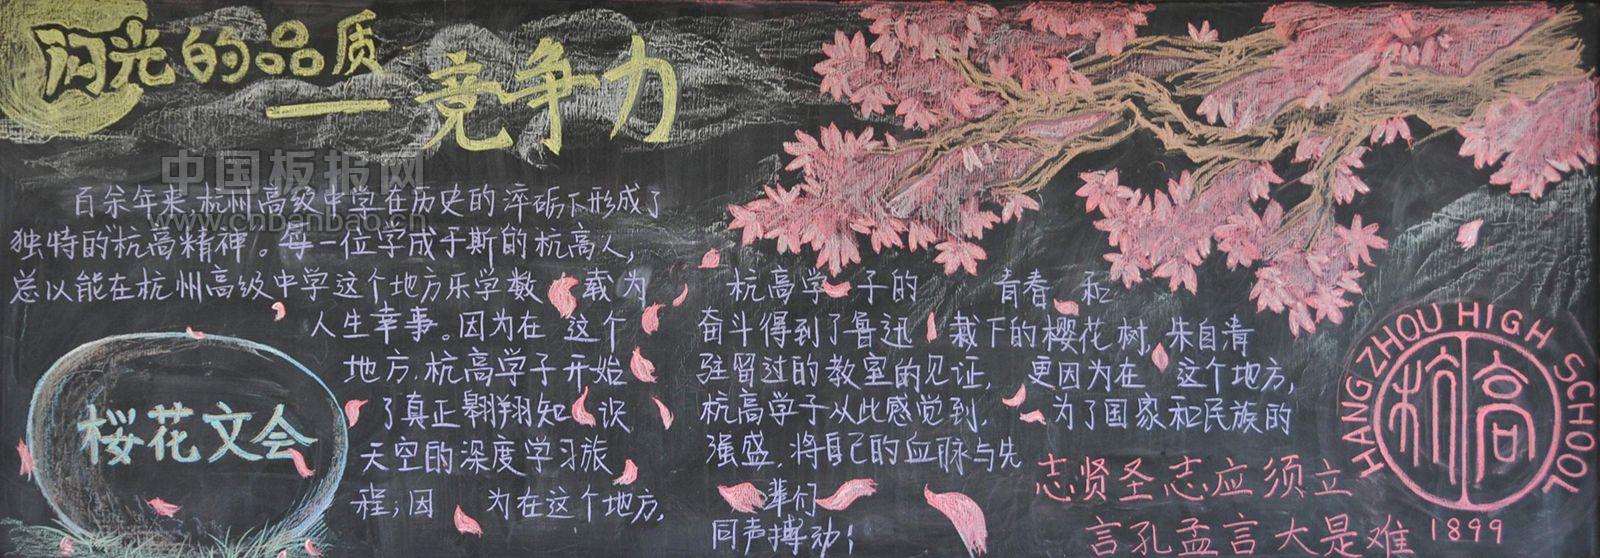 闪光的品质
——竞争力
中国板报网
www.cnbanbao.cn
百余年来,杭州高级中学在历史的淬砺下形成了
独特的"杭高精神"。每一位学成于斯的杭高人,
总以能在杭州高级中学这个地方乐学数载为
人生幸事。因为在这个
地方,杭高学子开始
了真正翱翔知识
天空的深度学习旅
程;因为在这个地方,
杭高学子的青春和
奋斗得到了鲁迅栽下的樱花树,朱自清
驻留过的教室的见证,更因为在这个地方,
杭高学子从此感觉到,为了国家和民族的
强盛,将自己的血脉与先
辈们
同声搏动!
樱花文会
志贤圣志应须立
言孔孟言大是难
HANG ZHOU HIGH SCHOOL
杭高
1899